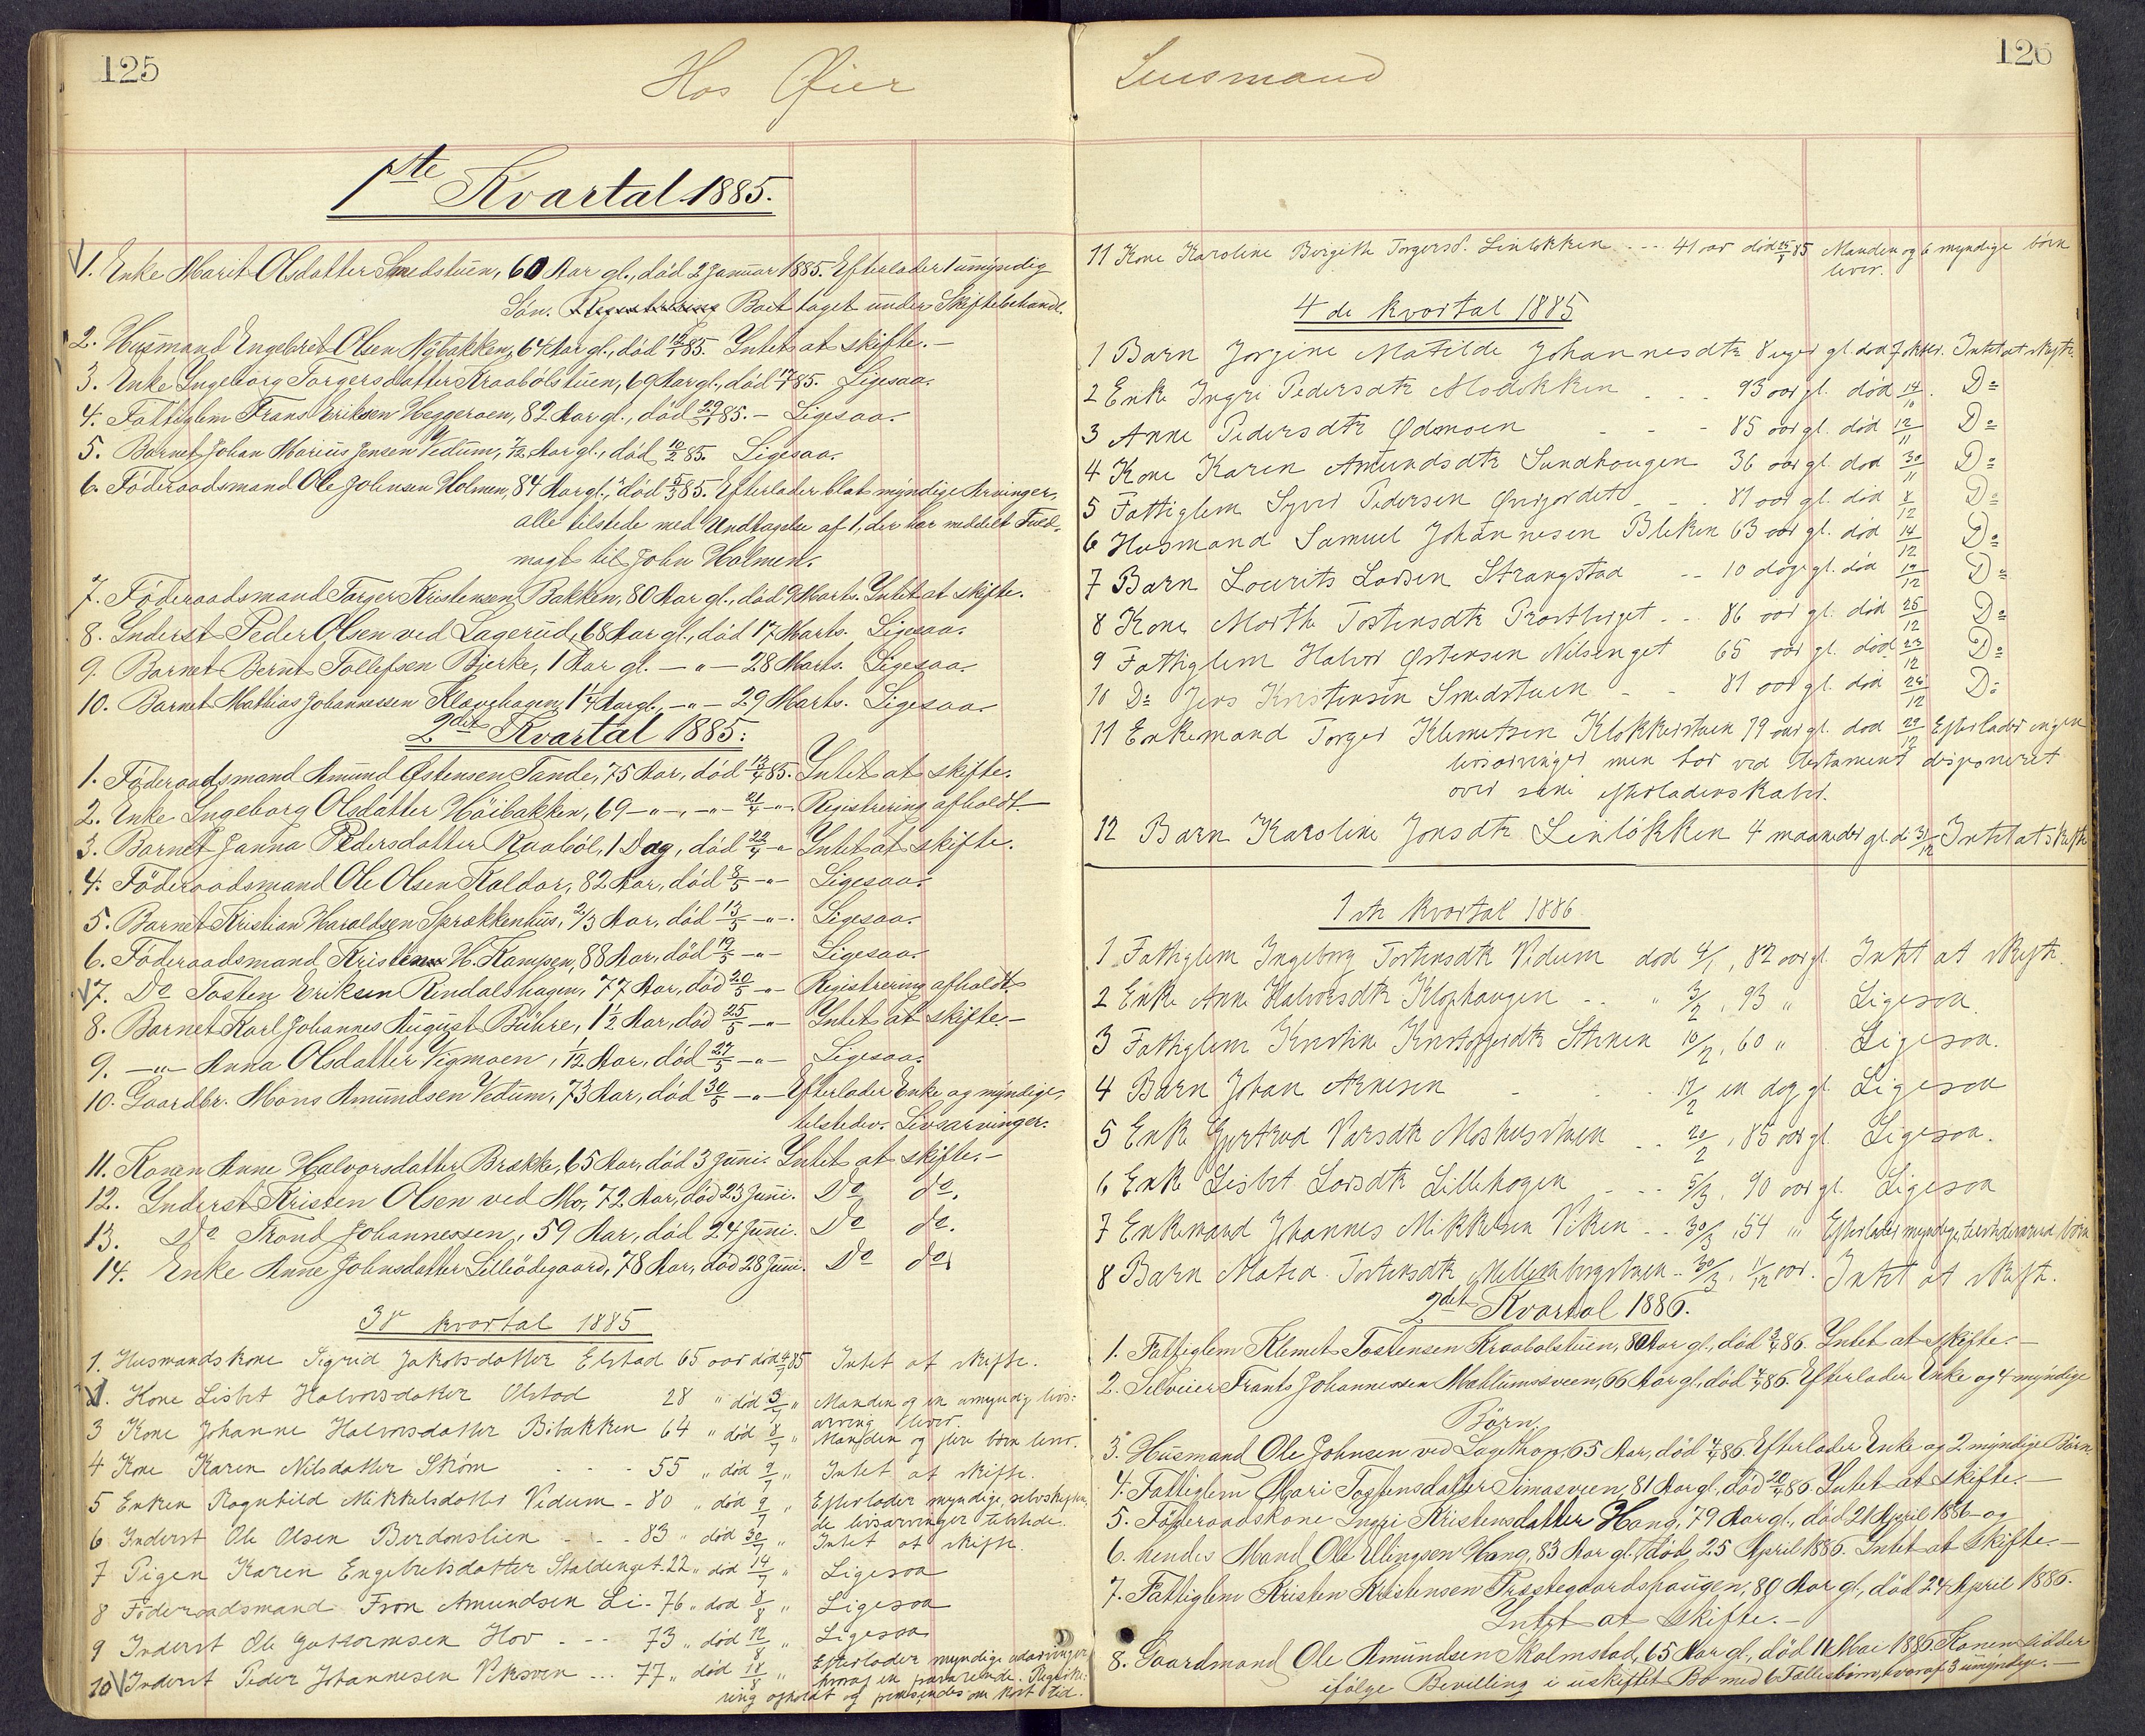 125
Hos Øier
1ste Kvartal 1885.
1. Enke Marit Olsdatter Smedstuen, 60 Aar gl., død 2 Januar 1885. Efterlader 1 umyndig
Søn. Boet taget under Skiftebehandl.
2. Husmand Engebret Olsen Nybakken, 64 Aar gl., død 85. Intet at skifte.-
3. Enke Ingeborg Torgersdatter Kraabølstuen, 69 Aar gl., død 85. Ligesaa.
4. Fattiglem Frans Eriksen Heggeroen, 82 Aar gl., død 29/1 85.- Ligesaa.
5. Barnet Johan Marius Jensen Vedum, 7/12 Aar gl., død 10/2 85. Ligesaa.
6. Føderaadsmand Ole Johnsen Holmen, 84 Aar gl., død 5/3 85. Efterlader blot myndige Arvinger,
alle tilstede med Undtagelse af 1, der har meddelt Fuld-
magt til John Holmen.
7. Føderaadsmand Torger Kristensen Bakken, 80 Aar gl., død 9 Marts. Intet at skifte.
8. Inderst Peder Olsen ved Lagerud, 68 Aar gl., død 17 Marts. Ligesaa.
9. Barnet Bernt Tollefsen Bjerke, 1 Aar gl. - " - 28 Marts. Ligesaa.
10. Barnet Mathias Johannessen Klavehagen, 1 1/4 Aar gl., - " - 29 Marts. Ligesaa.
2det Kvartal 1885:
1. Føderaadsmand Amund Østensen Tande, 75 Aar, død 13/4 85. Intet at skifte.
2. Enke Ingeborg Olsdatter Høibakken, 69 - " -, - " - 21/4 - " -. Registrering afholdt
3. Barnet Janna Pedersdatter Raabøl, 1 Dag, død 22/4 - " Intet at skifte.
4. Føderaadsmand Ole Olsen Kaldor, 82 Aar, død 8/5 - " - Ligesaa.
5. Barnet Kristian Haraldsen Sprækkenhus, 2/3 Aar, død 13/5 - " -. Ligesaa.
6. Føderaadsmand Kristen H. Kampen, 88 Aar, død 19/5 - " - Ligesaa.
7. Do Tosten Eriksen Rindalshagen, 77 Aar, død 20/5 - " - Registrering afholdt.
8. Barnet Karl Johannes August Bühre, 1 1/2 Aar, død 25/5 - " - Intet at skifte.-
9. - " - Anna Olsdatter Vigmoen, 1/12 Aar, død 27/5 - " - Ligesaa.
10. Gaardbr. Mons Amundsen Vedum, 73 Aar, død 30/5 - " - Efterlader Enke og myndige,
tilstedev. Livsarvinger.
11. Konen Anne Halvorsdatter Brække, 65 Aar, død 3 Juni. Intet at skifte.-
12. Inderst Kristen Olsen ved Mo, 72 Aar, død 23 Juni. Do do.
13. Do Trond Johannessen, 59 Aar, død 24 Juni. Do do.
14. Enke Anne Johnsdatter Lilleødegaard, 78 Aar, død 28 Juni. Do do
3die kvartal 1885
1. Husmandskone Sigrid Jakobsdatter Elstad 65 aar død 85 Intet at skifte.
Kone Lisbet Halvorsdatter Olstad 28 " død 3/7 " Manden og en umyndig livs-
arving lever.
3 Kone Johanne Halvorsdatter Bibakken 64 " død 8/7 " Manden og flere børn lever.
4 Kone Karen Nilsdatter Skøm - - - 55 " død 9/7 " Intet at skifte.
5 Enken Ragnhild Mikkelsdatter Vedum - 80 " død 9/7 " Efterlader myndige, selvskiften-
de livsarvinger tilstede.
6 Inderst Ole Olsen Berdonslien - - - 83 " død 30/7 " Intet at skifte.
7 Pigen Karen Engebretsdatter Staldenget - 22 " død 14/7 " Ligesaa
8 Føderaadsmand Fron Amundsen Li - 76 " død 8/8 " Ligesaa
9 Inderst Ole Guttormsen Hov - - - 73 " død 12/8 " Ligesaa
10 Inderst Peder Johannesen Viksven ... 77 " død 18/8 " Efterlader myndige udarvinger
hvoraf en fraværende. Registre-
ring afholdt og fremsendes om kort tid.
126
Lensmand
11 Kone Karoline Bergithe Torgersd. Linløkken - - - 41 aar død 85 Manden og 6 myndige børn
lever.
4de kvartal 1885
1 Barn Jorgine Matilde Johannesdtr 8 uger gl. død 7 oktbr. Intet at skifte.
2 Enke Ingri Pedersdtr Moløkken - - - 93 aar gl. død 14/10. Do
3 Anne Pedersdtr Ødemoen - - - 85 aar gl. død 12/11 Do
4 Kone Karen Amundsdtr Sundhaugen 36 aar gl. død 30/11 Do
5 Fattiglem Syver Pedersen Øvrjordet - - - 81 aar gl. død 8/12 Do
6 Husmand Samuel Johannesen Bleken 63 aar gl. død 14/12 Do
7 Barn Lourits Larsen Strangstad - - 10 dage gl. død 19/12 Do
8 Kone Marthe Tostensdtr Prostberget - - 86 aar gl. død 25/12 Do
9 Fattiglem Halvor Østensen Nilsenget 65 aar gl. død 23/12 Do
10 Do Jens Kristensen Smedstuen - - 81 aar gl. død 24/12 Do
11 Enkemand Torger Klemetsen Klokkerstuen 79 aar gl. død 29/12 Efterlader ingen
livsarvinger men har ved testament disponeret
over sine efterladenskaber.
12 Barn Karoline Jonsdtr Linløkken 4 maaneder gl. d. 31/12 Intet at skifte
1ste kvartal 1886
1 Fattiglem Ingeborg Tostensdtr Vedum død 4/1, 82 aar gl. Intet at skifte.
2 Enke Anne Halvorsdtr Klophaugen - - " 3/2, 93 " Ligesaa.
3 Fattiglem Kristine Kristofersdtr Stenen 10/2, 60 " Ligesaa.
4 Barn Johan Arnesen - - - 17/2 en dag gl. Ligesaa
5 Enke Gjertrud Larsdtr Moshusstuen - - 20/2, 85 aar gl. Ligesaa.
6 Enke Lisbet Larsdtr Lillehagen - - - 5/3, 90 aar gl. Ligesaa
7 Enkemand Johannes Mikkelsen Viken - - 30/3, 54 " Efterlader myndige, tilstedeværend. børn
8 Barn Matea Tostensdtr Mellembergstuen - 30/3, 11/12 aar. Intet at skifte.
2det Kvartal 1886.
1. Fattiglem Klemet Tostensen Kraabølstuen, 80 Aar gl., død 3/4 86. Intet at skifte.-
2. Selveier Frants Johannessen Mæhlumssveen, 66 Aar gl., død 86. Efterlader Enke og 4 myndige
Børn.
3. Husmand Ole Johnsen ved Sagethop, 65 Aar, død 86. Efterlader Enke og 2 myndige Børn.
4. Fattiglem Mari Tostensdatter Simasveen, 81 Aar gl., død 20/4 86. Intet at skifte.-
5. Føderaadskone Ingri Kristensdatter Hong, 79 Aar gl., død 21 April 1886 og
6. hendes Mand Ole Ellingsen Hong, 83 Aar gl., død 25 April 1886. Intet at skifte.-
7. Fattiglem Kristen Kristensen Præstegaardshaugen, 80 Aar gl., død 24 April 1886.
Intet at skifte.-
8. Gaardmand Ole Amundsen Skalmstad, 65 Aar gl., død 11 Mai 1886. Konen sidder
ifølge Bevilling i uskiftet Bo med 6 Fællesbørn, hvoraf 3 umyndige.-